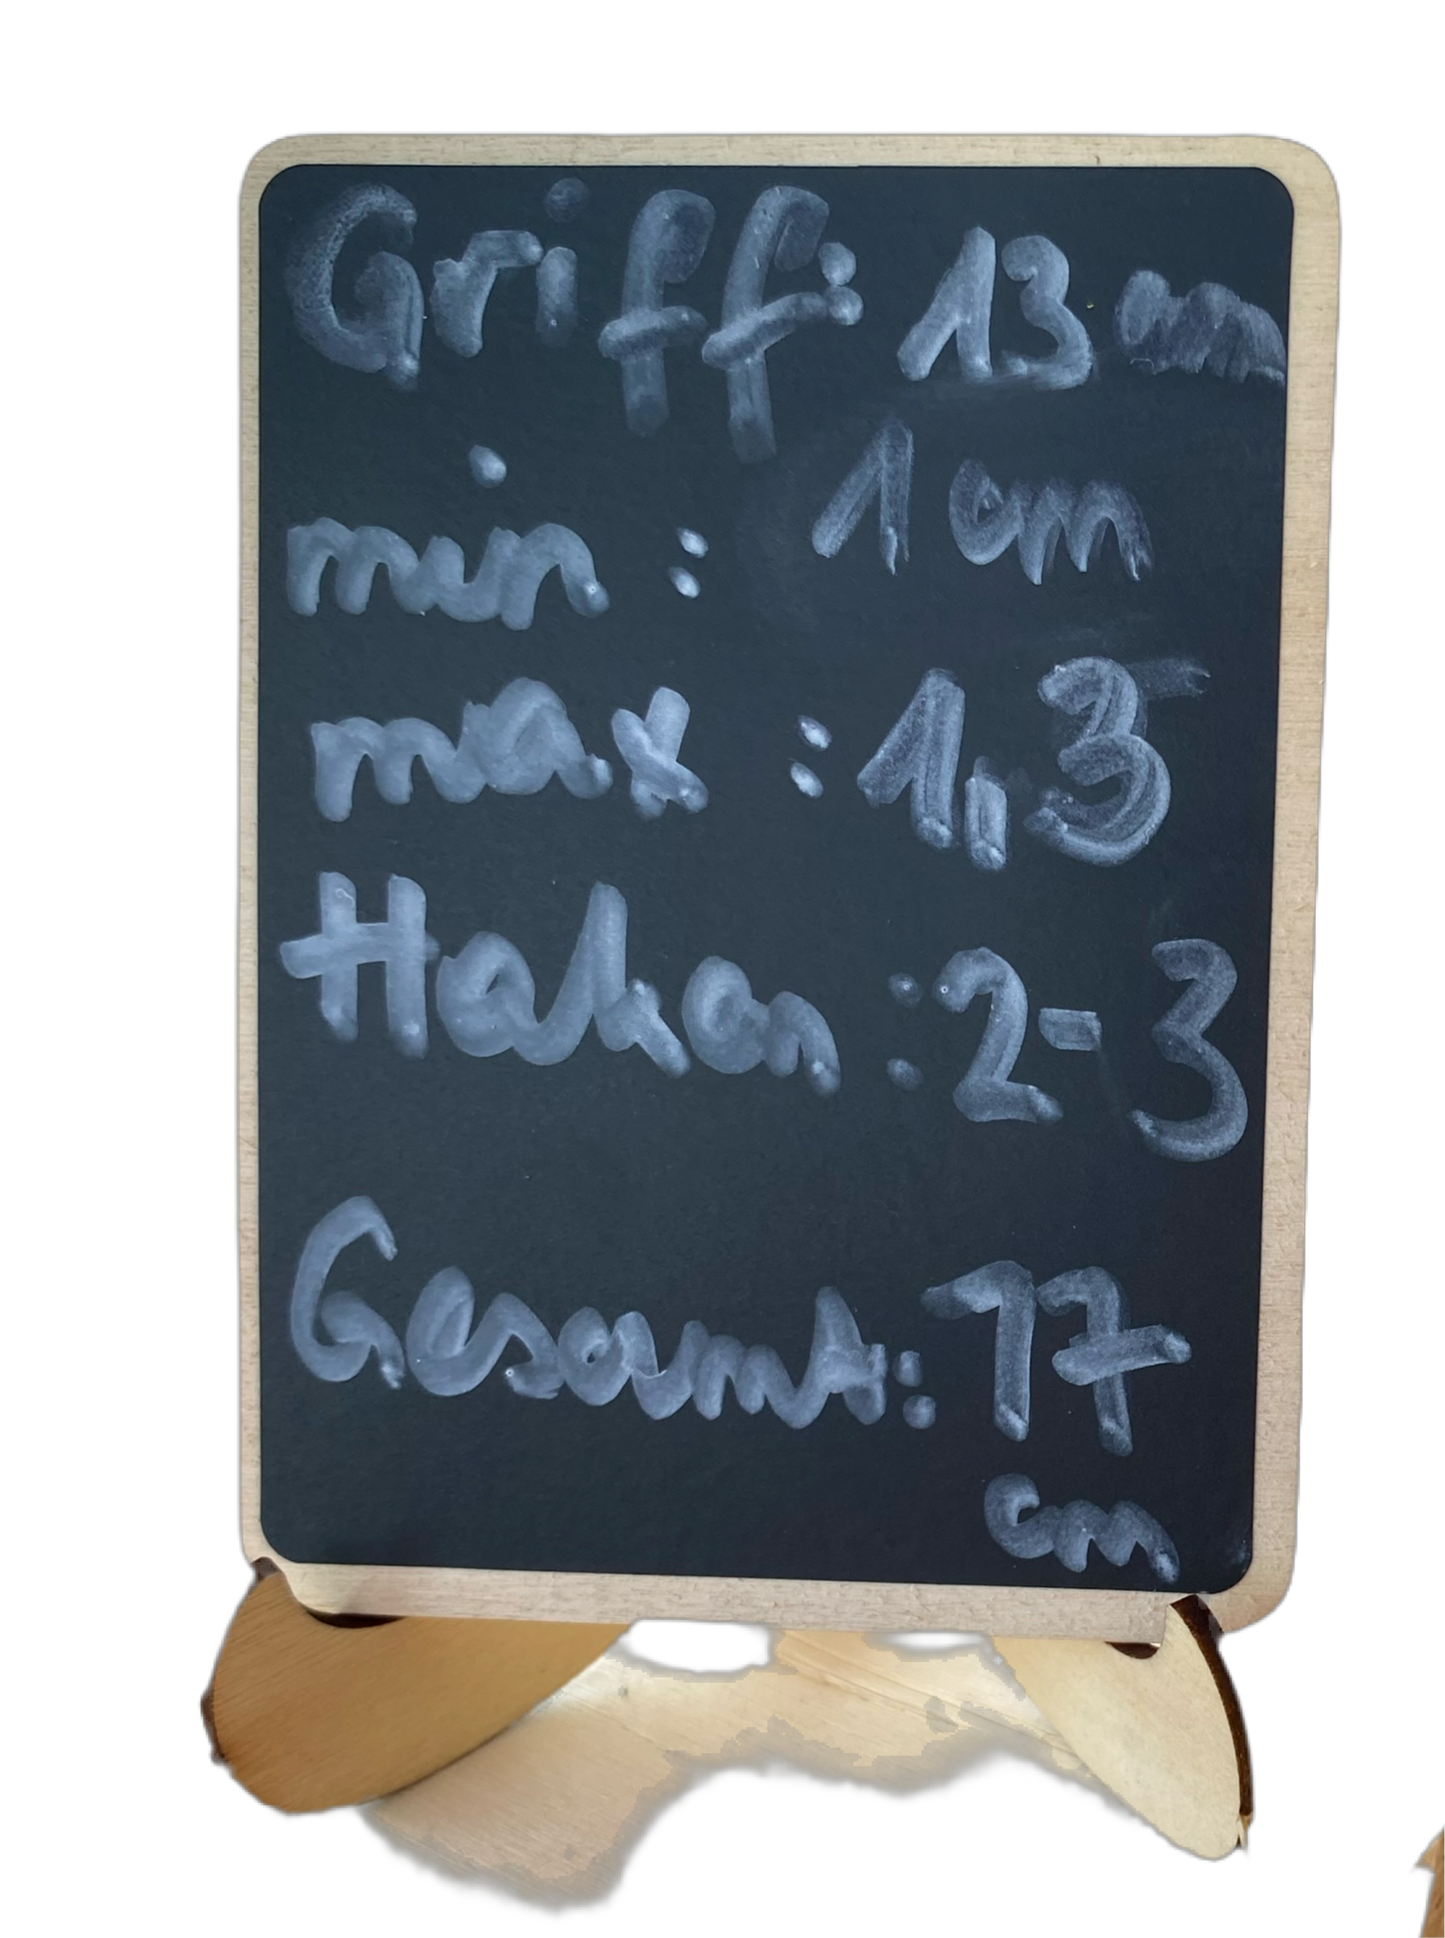 Griff: 13 cm
min : 1 cm
max : 1,3
Haken : 2-3
Gesamt: 17
cm